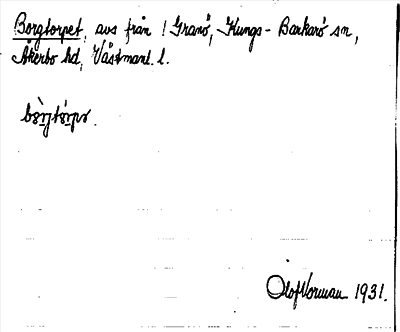 Borgtorpet, avs från 1 Granö, Kungs-Barkarö sn,
Åkerbo hd, Västmanl. l.
Olof Norman 1931.